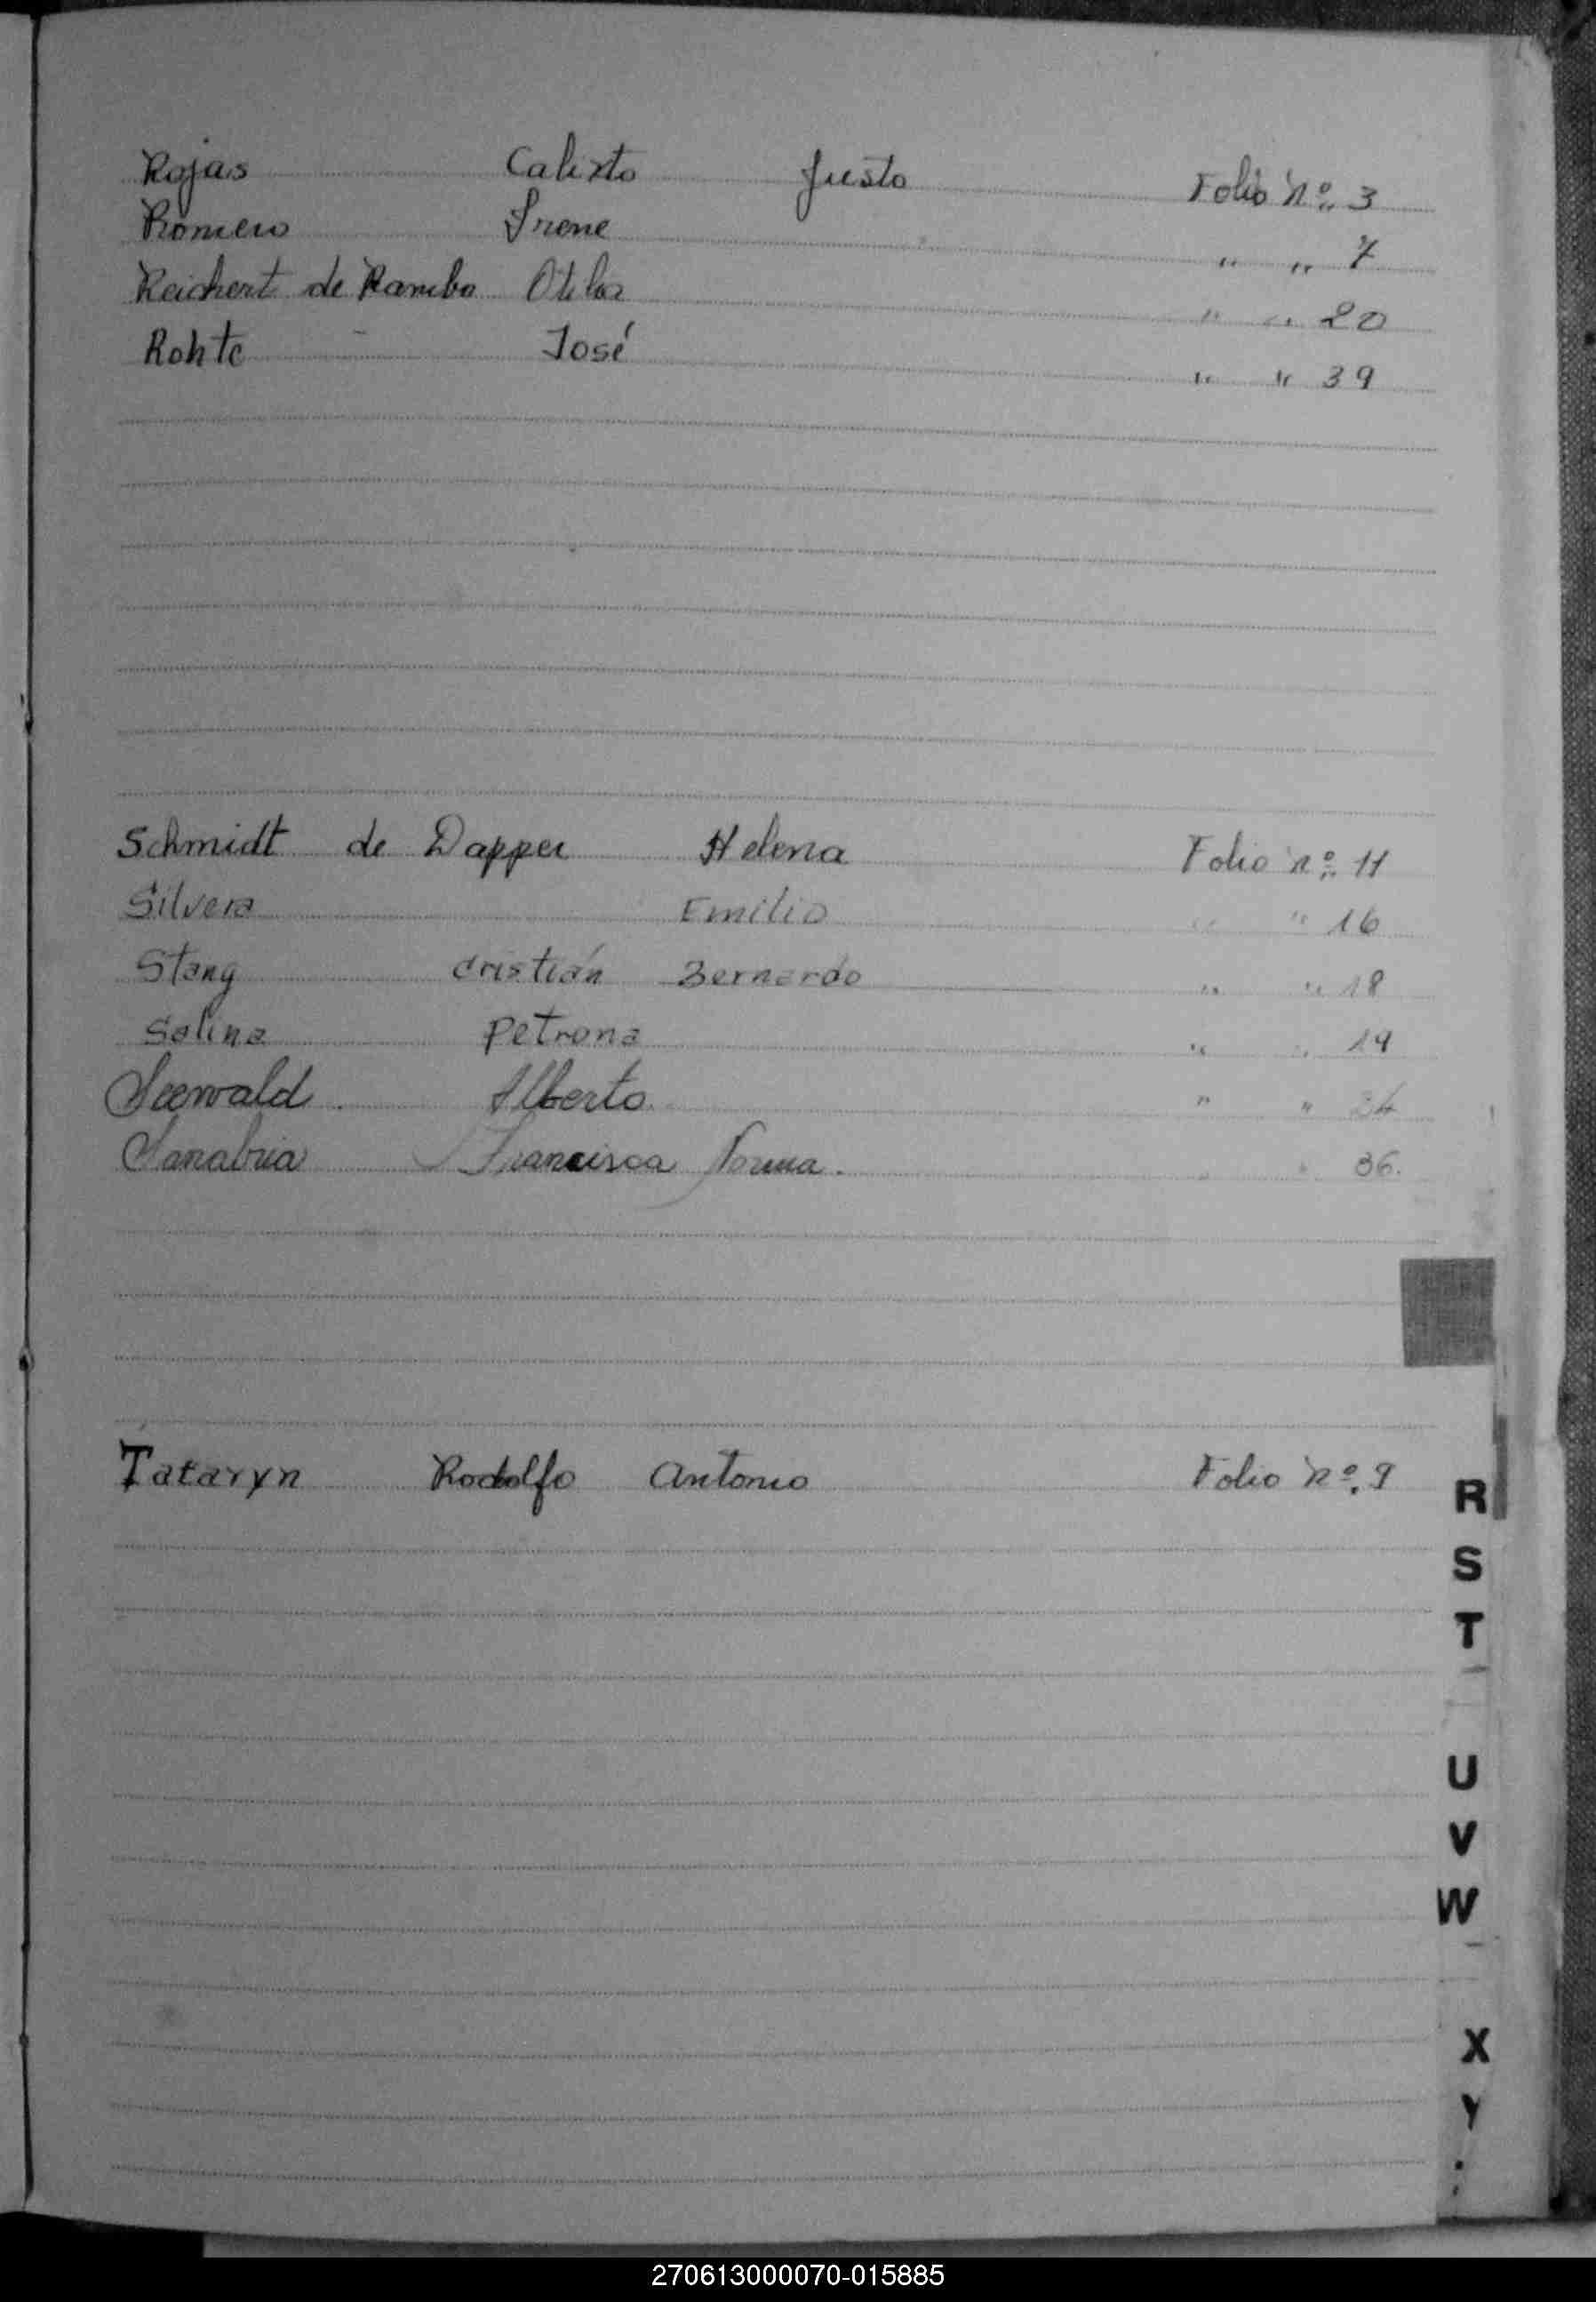 Rojas Calixto Justo Folio nº 3
Romero Irene " " 7
Reichert de Rambo Otilia " " 20
Rohte José " " 39
Schmidt de Dapper Helena Folio nº 11
Silvera Emilio " " 16
Stang Cristián Bernardo " " 18
Salina Petrona " " 19
Seewald Alberto " " 34
Sanabria Francisca Norma. " " 36.
Tataryn Rodolfo Antonio Folio nº 9
R
S
T
U
V
W
X
Y
270613000070-015885